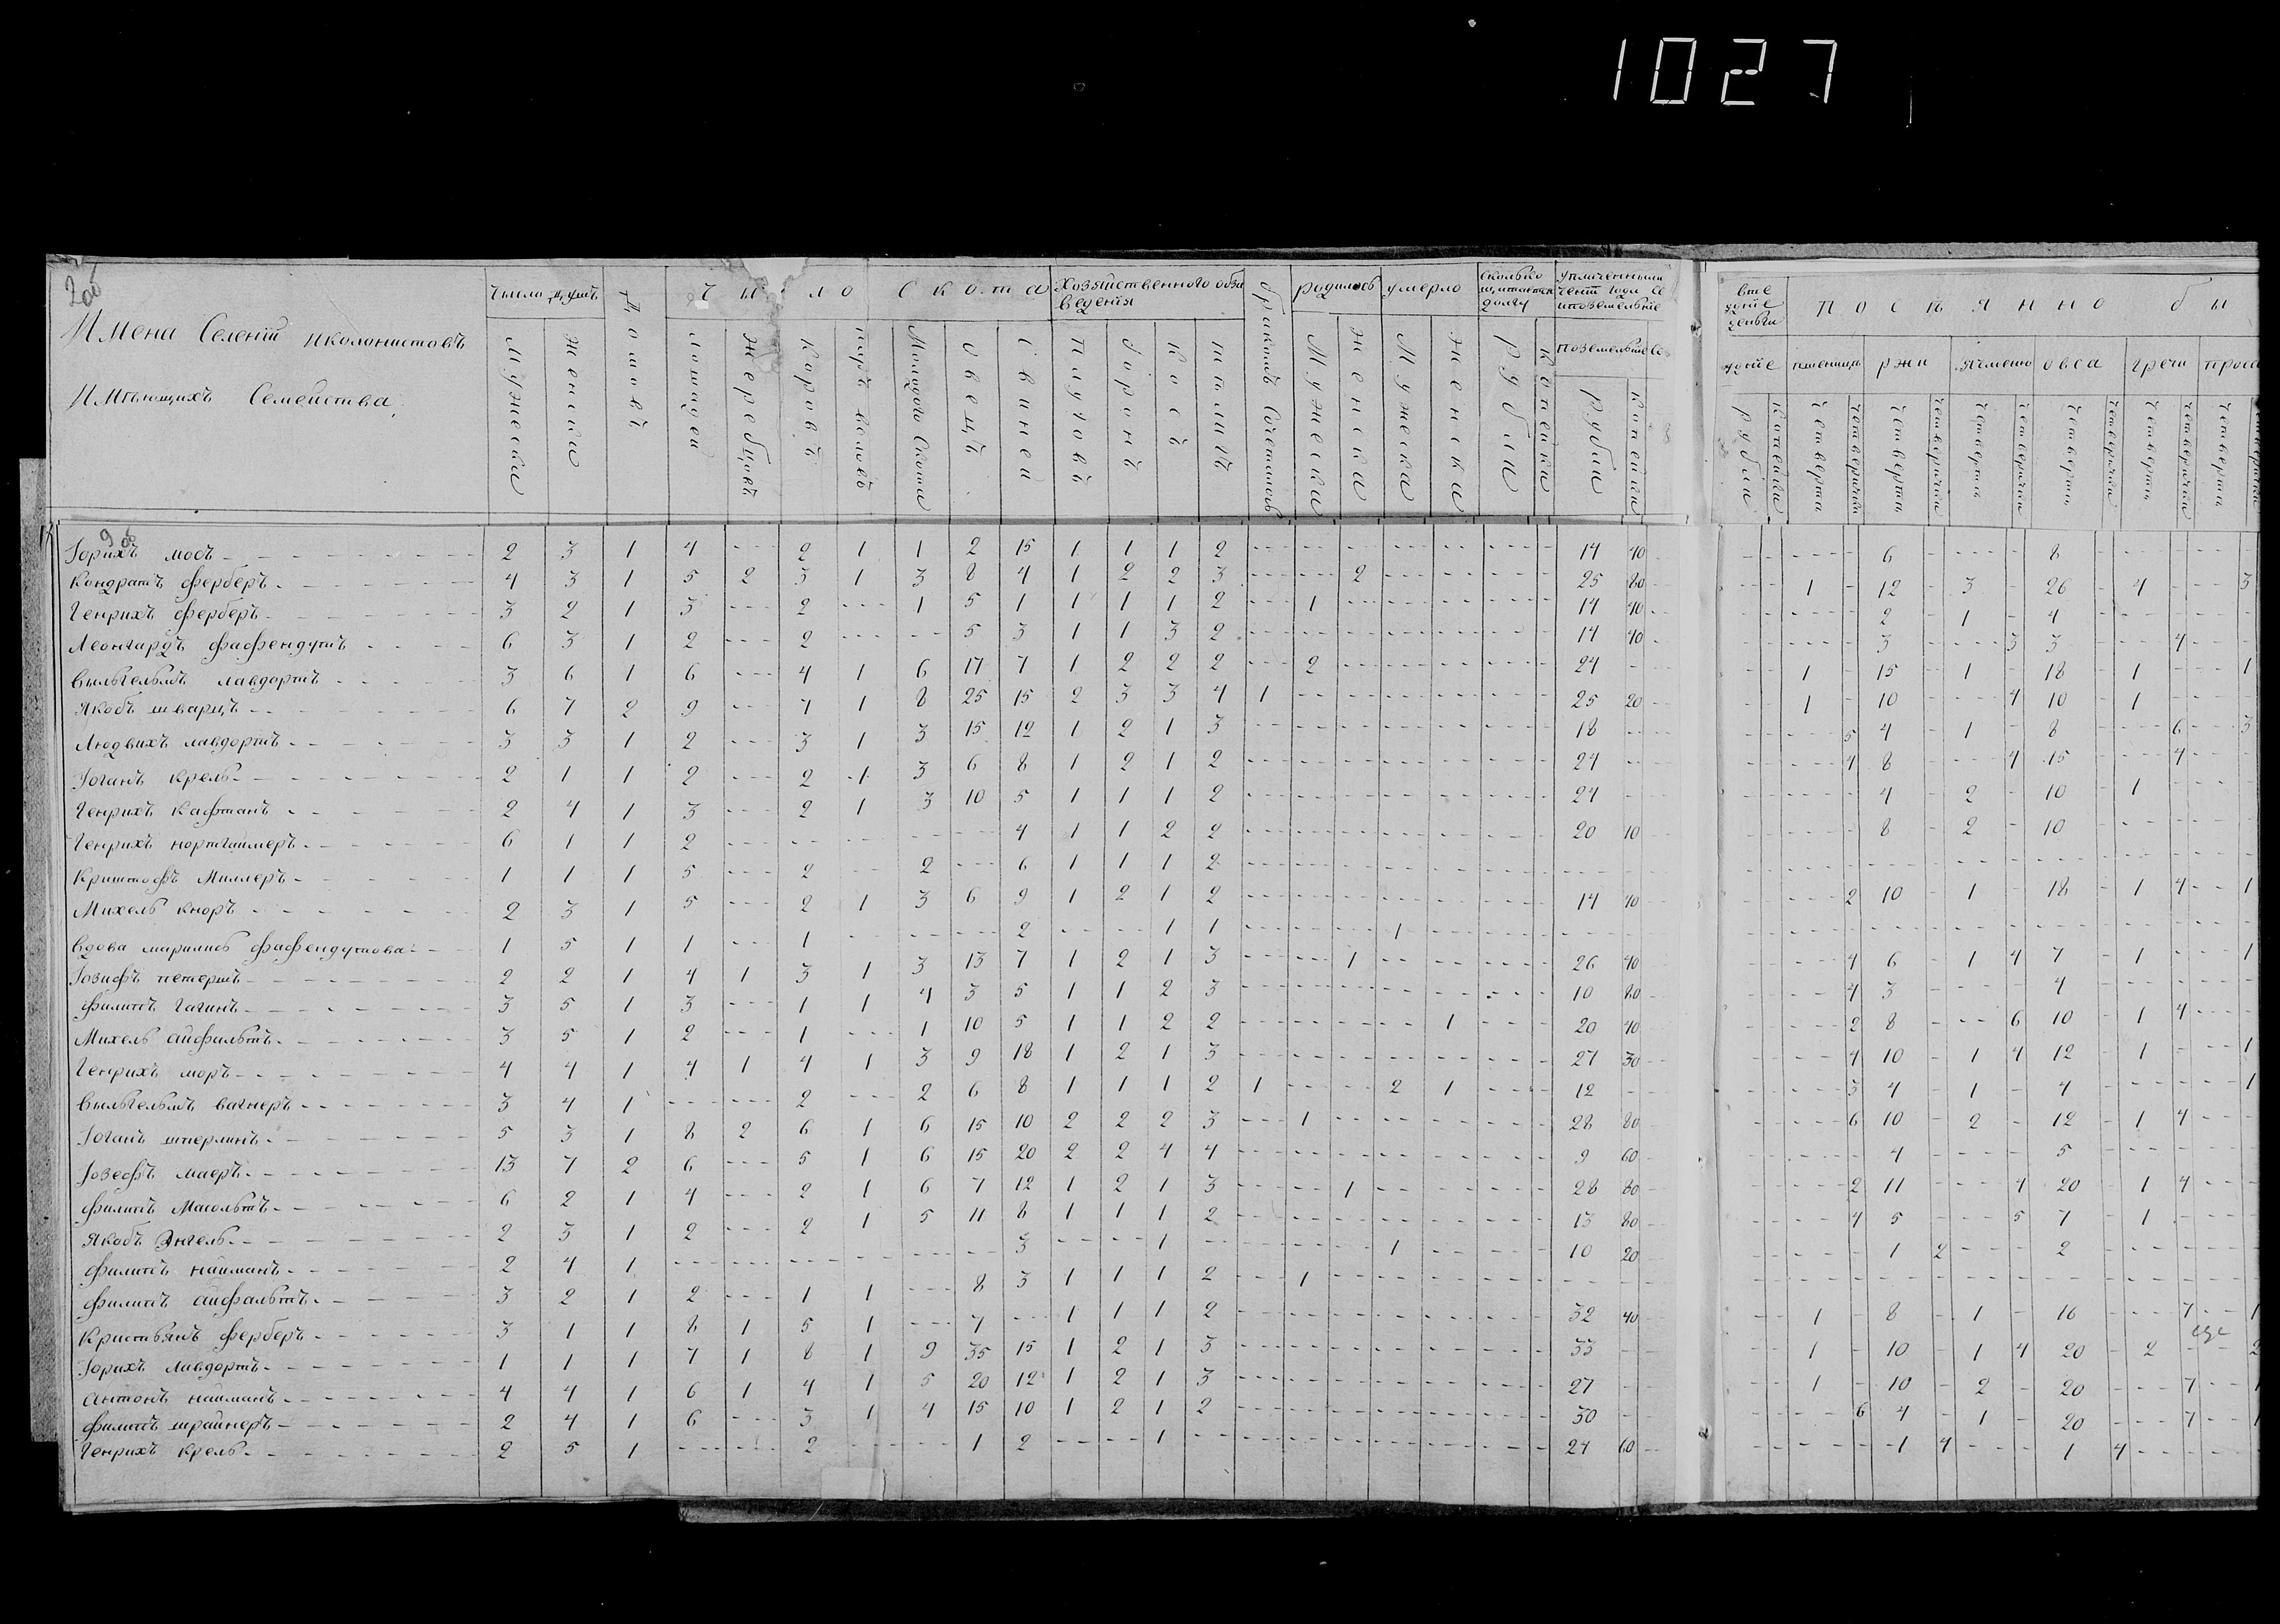 1027
2 об
Имена Селенiй иколонистовъ
Имѣющихъ Семейства.
Число душъ
Мужеска
Женска
Домовъ
Число Скота
Лошадей
Жеребцовъ
Коровъ
паръ воловъ
Молодого Скота
Овецъ
Свиней
Хозяйственного обза
веденiя
Плуговъ
боронъ
Косъ
бракомъ Сочетались
родилось
Мужеска
Женска
умерло
Мужеска
Женска
Сколько
долгу
Рубли
Копейки
поземельные
Рубли
Копейки
деньги
Рубли
Копейки
Посѣянно бы
пшеницы
ржи
ячменю
овса
гречи
проса
четверти
четверички
9 об
Iорихъ мосъ 2 3 1 4 - 2 1 1 2 15 1 1 1 2 - - - - - - - 14 40 - - - - 6 - - - 8 - - - - -
Кондратъ ферберъ 4 3 1 5 2 3 1 3 8 4 1 2 2 3 - - 2 - - - - 25 80 - - 1 - 12 - 3 - 26 - 4 - - 3
Генрихъ ферберъ 3 2 1 3 - 2 - 1 5 1 1 1 1 2 - 1 - - - - - 14 40 - - - - 2 - 1 - 4 - - - - -
Леонгардъ фафендутъ 6 3 1 2 - 2 - - 5 3 1 1 3 2 - - - - - - - 14 40 - - - - 3 - - 3 3 - - 4 - -
Вильгельмъ лавдортъ 3 6 1 6 - 4 1 6 17 7 1 2 2 2 - 2 - - - - - 24 - - - 1 - 15 - 1 - 18 - 1 - - 1
Якобъ шварцъ 6 7 2 9 - 7 1 8 25 15 2 3 3 4 1 - - - - - - 25 20 - - 1 - 10 - - 4 10 - 1 - - -
Людвихъ лавдортъ 3 3 1 2 - 3 1 3 15 12 1 2 1 3 - - - - - - - 18 - - - - 5 4 - 1 - 8 - - 6 - 3
Iоганъ крель 2 1 1 2 - 2 1 3 6 8 1 2 1 2 - - - - - - - 24 - - - - 4 8 - - 4 15 - - 4 - -
Генрихъ кафманъ 2 4 1 3 - 2 1 3 10 5 1 1 1 2 - - - - - - - 24 - - - - - 4 - 2 - 10 - 1 - - -
Генрихъ нортгаимеръ 6 1 1 2 - - - - - 4 1 1 2 2 - - - - - - - 20 10 - - - - 8 - 2 - 10 - - - - -
Криштофъ Миллеръ 1 1 1 5 - 2 - 2 - 6 1 1 1 2 - - - - - - - - - - - - - - - - - - - - - - -
Михель кноръ 2 3 1 5 - 2 1 3 6 9 1 2 1 2 - - - - - - - 14 40 - - - 2 10 - 1 - 18 - 1 4 - 1
Вдова марились фафендутова 1 5 1 1 - 1 - - - 2 - - 1 1 - - - 1 - - - - - - - - - - - - - - - - - - -
Iозифъ петершъ 2 2 1 4 1 3 1 3 13 7 1 2 1 3 - - 1 - - - - 26 40 - - - 4 6 - 1 4 7 - 1 - - 1
филипъ гагинъ 3 5 1 3 - 1 1 4 3 5 1 1 2 3 - - - - - - - 10 80 - - - 4 3 - - - 4 - - - - -
Михель аифальтъ 3 5 1 2 - 1 - 1 10 5 1 1 2 2 - - - - 1 - - 20 40 - - - 2 8 - - 6 10 - 1 4 - -
Генрихъ моръ 4 4 1 4 1 4 1 3 9 18 1 2 1 3 - - - - - - - 27 30 - - - 4 10 - 1 4 12 - 1 - - 1
Вильгельмъ вагнеръ 3 4 1 - - 2 - 2 6 8 1 1 1 2 1 - - 2 1 - - 12 - - - - 3 4 - 1 - 4 - - - - 1
Iоганъ штерлинъ 5 3 1 8 2 6 1 6 15 10 2 2 2 3 - 1 - - - - - 28 80 - - - 6 10 - 2 - 12 - 1 4 - -
Iозефъ маеръ 13 7 2 6 - 5 1 6 15 20 2 2 4 4 - - - - - - - 9 60 - - - - 4 - - - 5 - - - - -
филипъ Масольтъ 6 2 1 4 - 2 1 6 7 12 1 2 1 3 - - 1 - - - - 28 80 - - - 2 11 - - 4 20 - 1 4 - -
Якобъ Энгель 2 3 1 2 - 2 1 5 11 8 1 1 1 2 - - - - - - - 13 80 - - - 4 5 - - 5 7 - 1 - - -
филипъ наиманъ 2 4 1 - - - - - - 3 - - 1 - - - - 1 - - - 10 20 - - - - 1 2 - - 2 - - - - -
филипъ аифальтъ 3 2 1 2 - 1 1 - 8 3 1 1 1 2 - 1 - - - - - - - - - - - - - - - - - - - - -
Кристьянъ ферберъ 3 1 1 8 1 5 1 - 7 - 1 1 1 2 - - - - - - - 32 40 - - 1 - 8 - 1 - 16 - - 7 - 1
Iорихъ лавдортъ 1 1 1 7 1 8 1 9 35 15 1 2 1 3 - - - - - - - 33 - - - 1 - 10 - 1 4 20 - 2 - - 2
Антонъ наиманъ 4 4 1 6 1 4 1 5 20 12 1 2 1 3 - - - - - - - 27 - - - 1 - 10 - 2 - 20 - - 7 - 1
филипъ шраинеръ 2 4 1 6 - 3 1 4 15 10 1 2 1 2 - - - - - - - 30 - - - - 6 4 - 1 - 20 - - 7 - 1
Генрихъ крель 2 5 1 - - 2 - - 1 2 - - 1 - - - - - - - - 24 60 - - - - 1 4 - - 1 4 - - - -